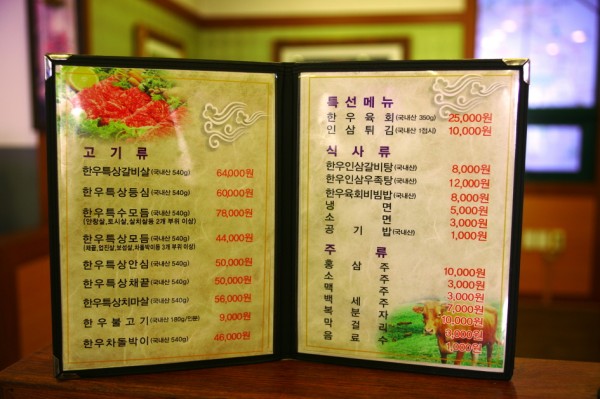 고 기 류
한우특상갈비살(국내산 540g) 64,000원
한우특상등심(국내산 540g) 60,000원
한우특수모듬(국내산 540g) 78,000원
(안창살,토시살,살치살등 2개 부위 이상)
한우특상모듬(국내산 540g) 44,000원
한우특상안심(국내산 540g) 50,000원
한우특상채끝(국내산 540g) 50,000원
한우특상치마살(국내산 540g) 56,000원
한 우 불 고 기(국내산 180g/1인분) 9,000원
한우차돌박이(국내산 540g) 46,000원
특선메뉴
한 우 육 회(국내산 350g) 25,000원
인 삼 튀 김(국내산 1접시) 10,000원
식 사 류
한우인삼갈비탕(국내산) 8,000원
한우인삼우족탕(국내산) 12,000원
한우육회비빔밥(국내산) 8,000원
냉 면 5,000원
소 면 3,000원
공 기 밥(국내산) 1,000원
주 류
홍 삼 주 10,000원
소 주 3,000원
맥 주 3,000원
백 세 주 7,000원
복 분 자 10,000원
막 걸 리 3,000원
음 료 수 1,000원